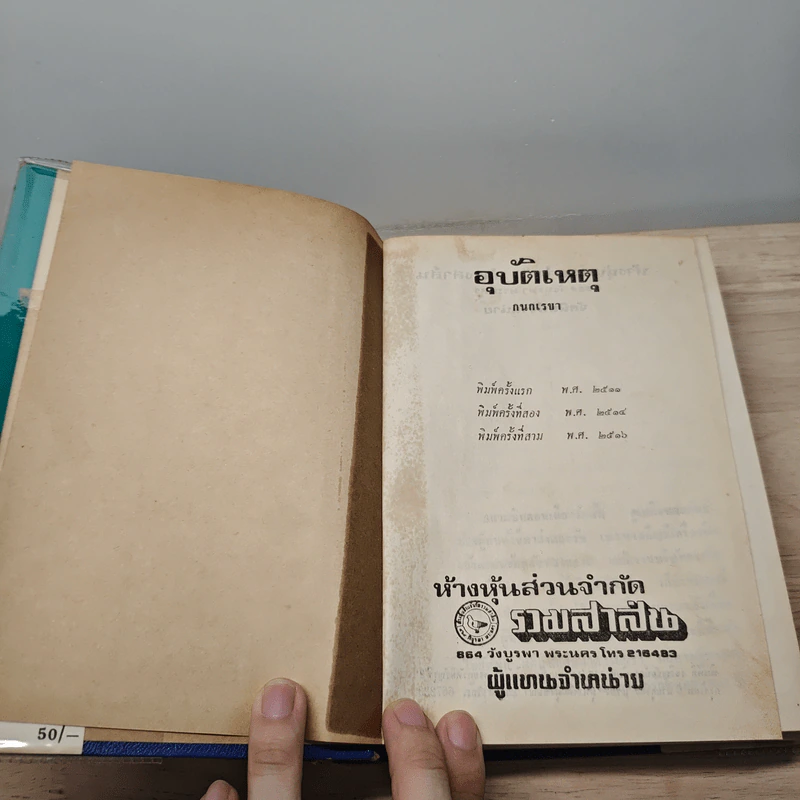 อุบัติเหตุ
กนกเรขา
พิมพ์ครั้งแรก พ.ศ. ๒๕๑๑
พิมพ์ครั้งที่สอง พ.ศ. ๒๕๑๔
พิมพ์ครั้งที่สาม พ.ศ. ๒๕๑๖
ห้างหุ้นส่วนจำกัด
รวมสาส์น
864 วังบูรพา พระนคร โทร 216483
ผู้แทนจำหน่าย
50/-